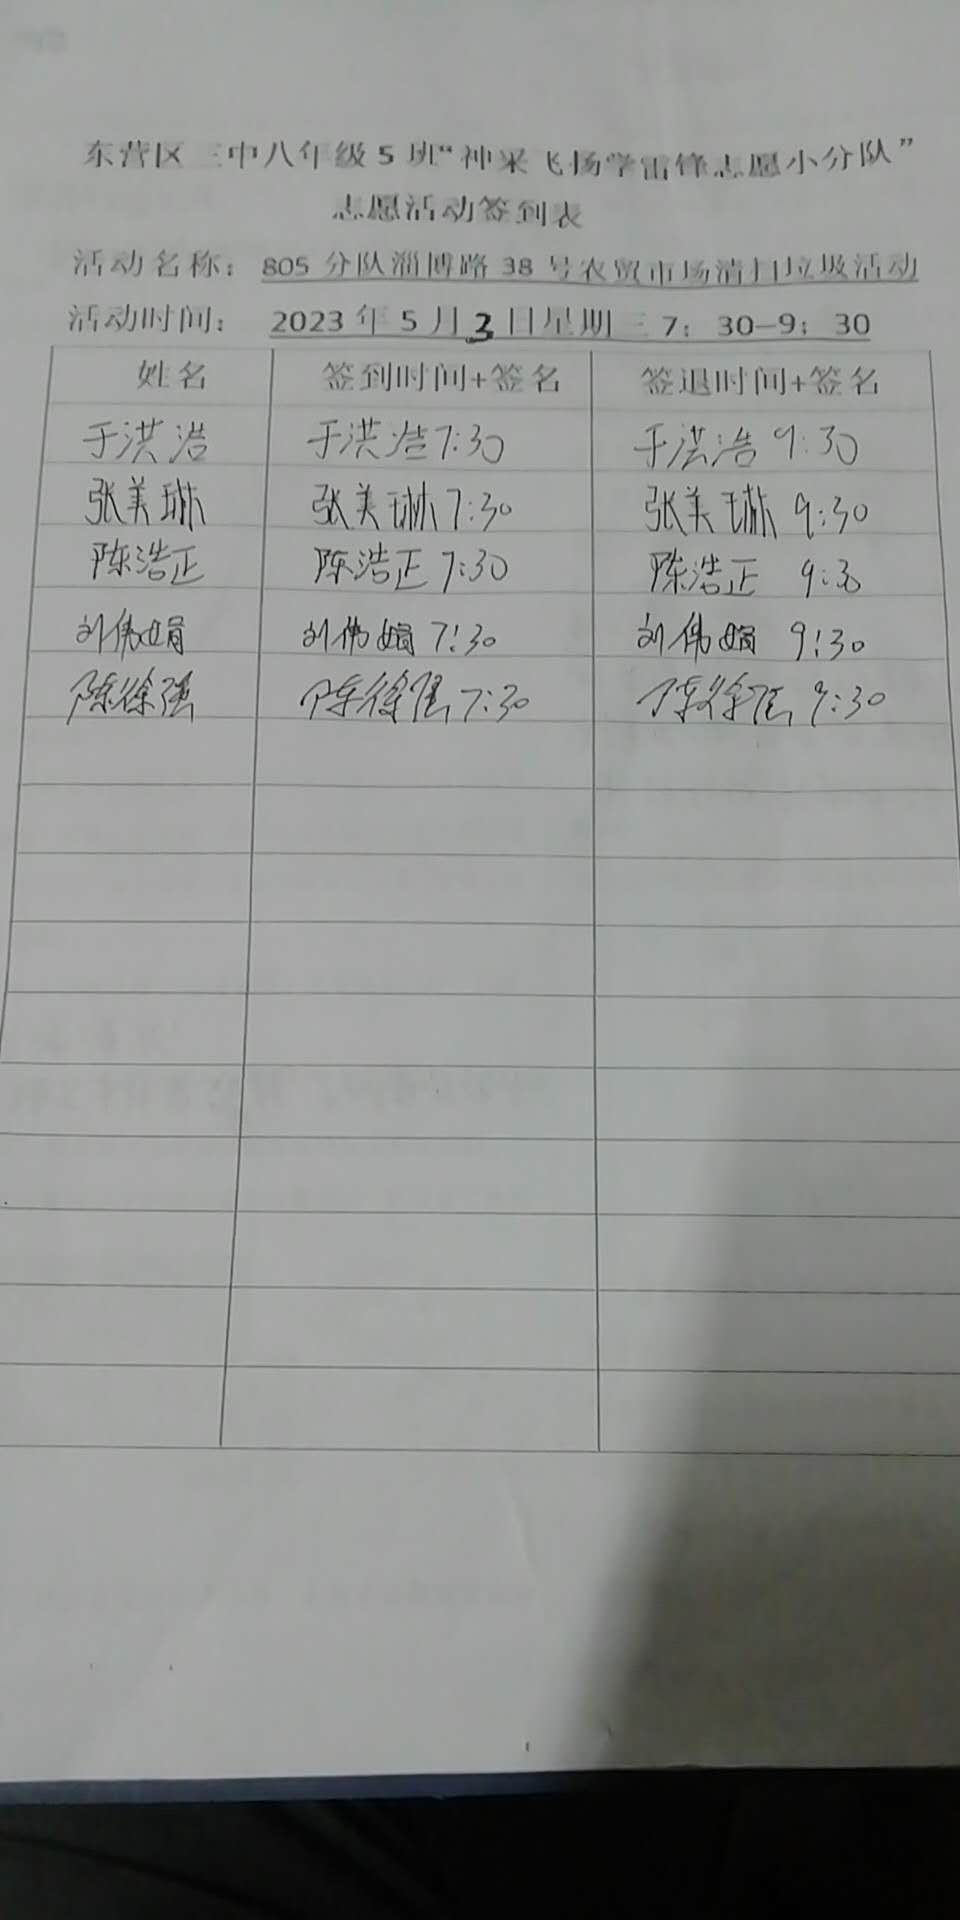 东营区三中八年级5班“神采飞扬学雷锋志愿小分队”
志愿活动签到表
活动名称：805分队淄博路38号农贸市场清扫垃圾活动
活动时间：2023年5月3日星期三7：30—9：30
姓名 签到时间+签名 签退时间+签名
于洪浩 于洪浩7:30 于洪浩 9:30
张美琳 张美琳7:30 张美琳 9:30
陈浩正 陈浩正7:30 陈浩正 9:30
刘伟娟 刘伟娟 7:30 刘伟娟 9:30
陈徐强 陈徐强 7:30 陈徐强 9:30